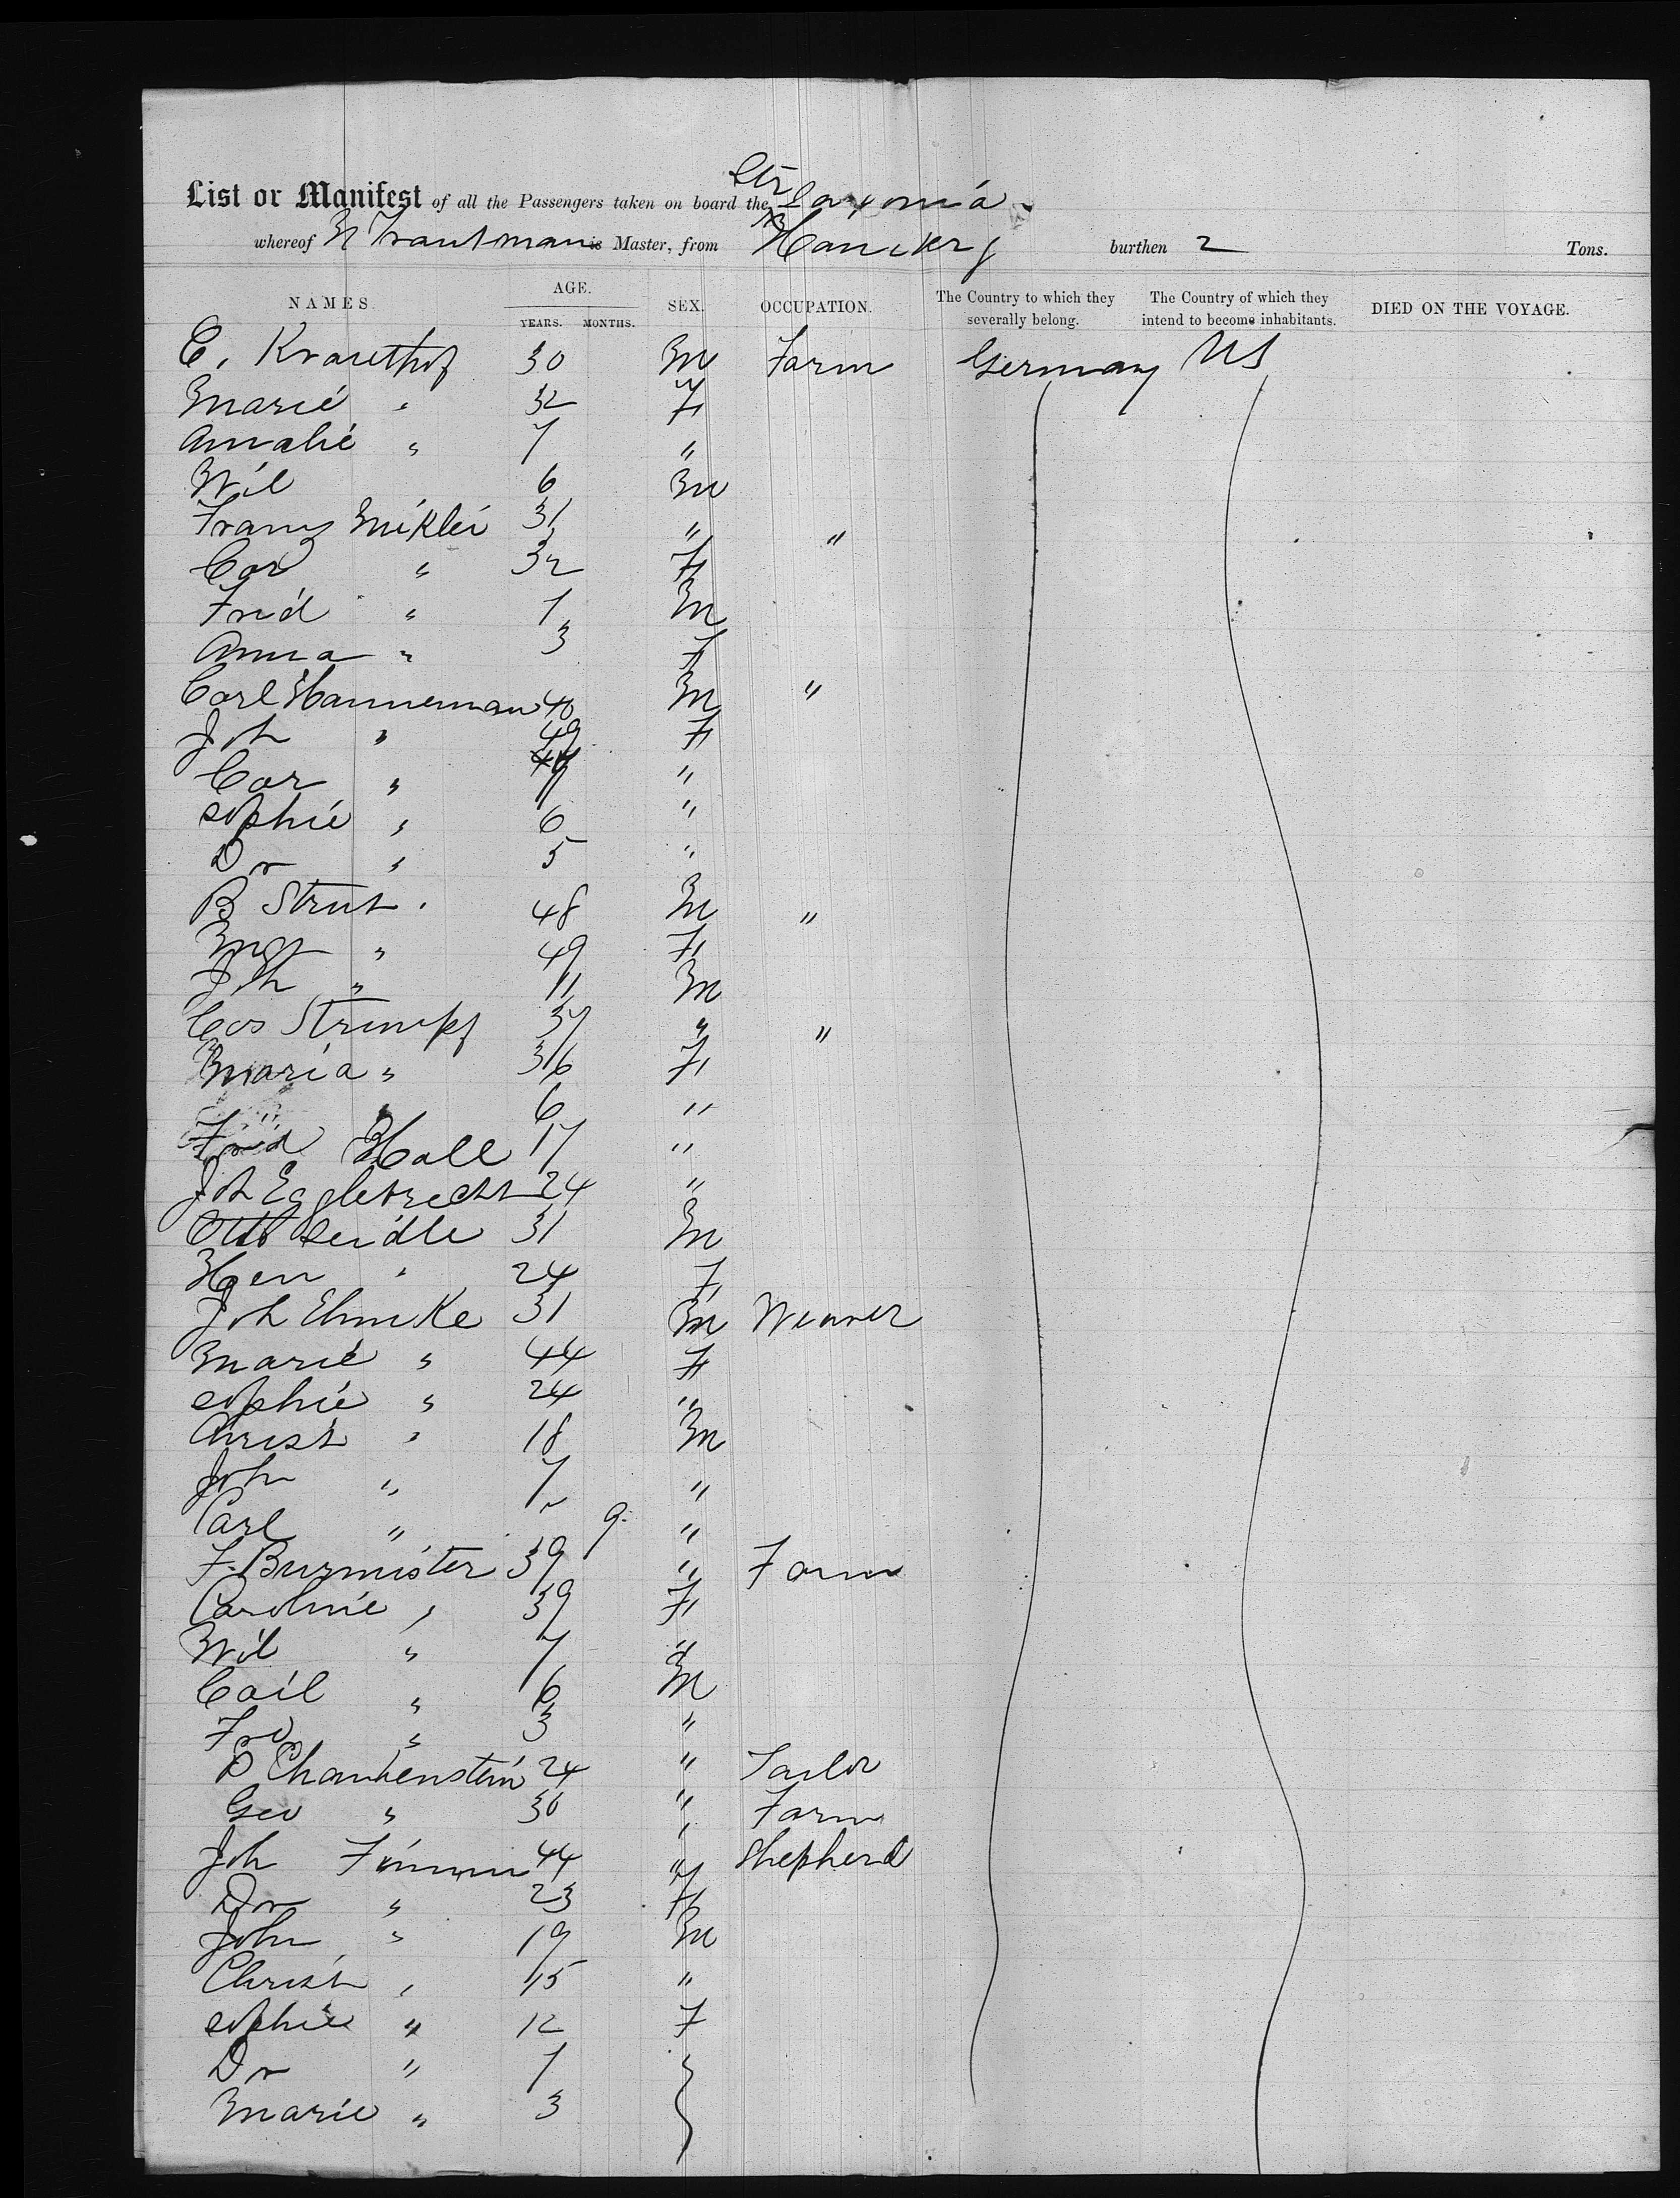 List or Manifest of all the Passengers taken on board the Str Saxonia
whereof N Trautmann is Master, from Hamburg burthen 2 Tons.
NAMES. AGE. YEARS. MONTHS. SEX. OCCUPATION. The Country to which they severally belong. The Country of which they intend to become inhabitants. DIED ON THE VOYAGE.
C. 30 M Farm Germany US
Marie " 32 F
Amalie " 7 "
Wil 6 M
Franz Miklei 31 " "
Car " 32 F
Frid " 7 M
Anna " 3 F
Carl Hanneman 40 M "
Joh " 49 F
Car " 7 "
Sophie " 6 "
Dr " 5 "
B Strut 48 M "
" 49 F
Joh " 11 M
Cas Strumpf 37 " "
Maria " 36 F
" 6 "
Frid Hall 17 "
Joh Egglebrecht 24 "
Otto Seidle 31 M
Hen " 24 F
Joh Ehmke 31 M Weaver
Marie " 44 F
Sophie " 24 "
Christ " 18 M
John " 7 "
Carl " 9 "
F. Burmister 39 " Farm
Caroline " 39 F
Wil " 7 "
Carl " 6 M
Fre " 3 "
24 " Tailor
Geo " 30 " Farm
Joh 44 " Shepherd
Dr " 23 F
John " 19 M
Christ " 15 "
Sophie " 12 F
Dr " 7
Marie " 3